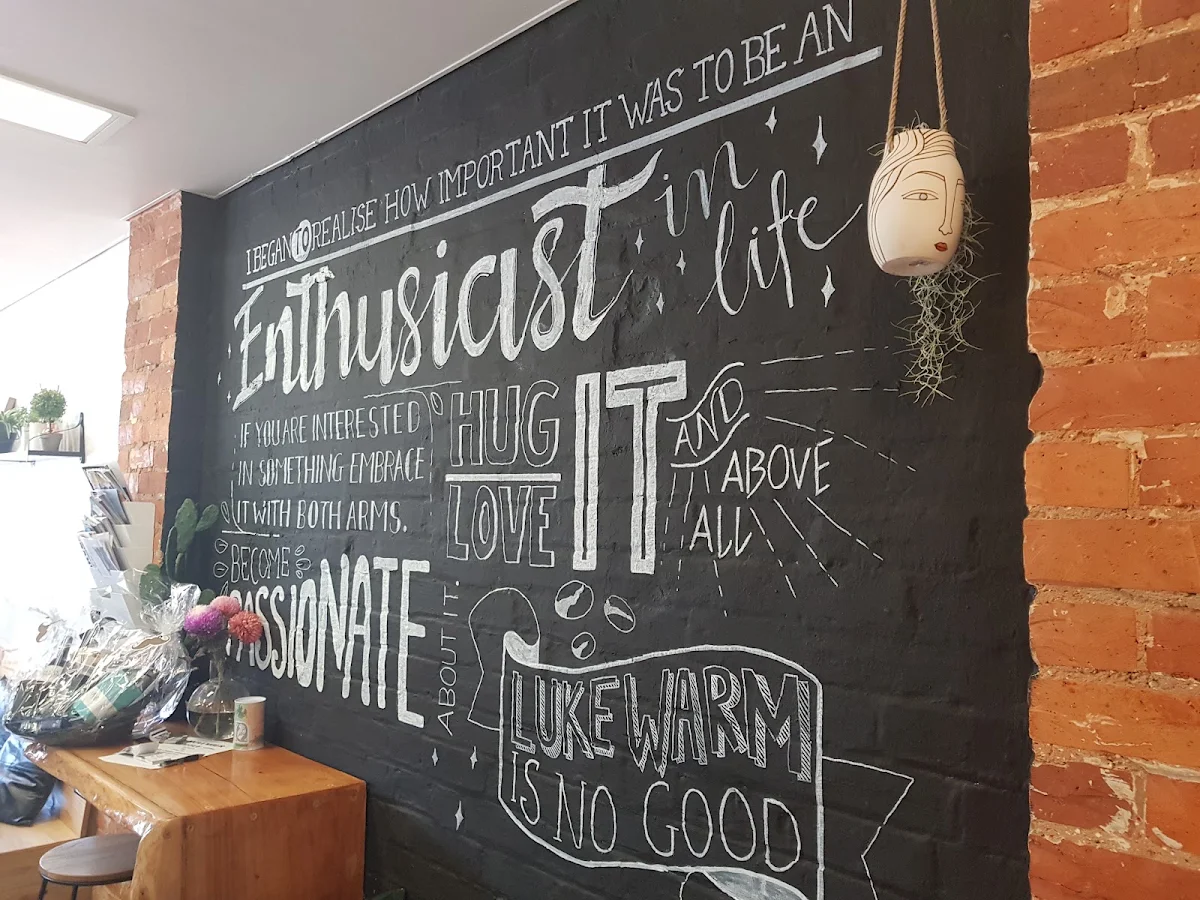 I BEGAN TO REALISE HOW IMPORTANT IT WAS TO BE AN
Enthusiast in life
IF YOU ARE INTERESTED
IN SOMETHING EMBRACE
IT WITH BOTH ARMS.
HUG
LOVE
IT
AND
ABOVE
ALL
BECOME
PASSIONATE
ABOUT IT.
LUKEWARM
IS NO GOOD